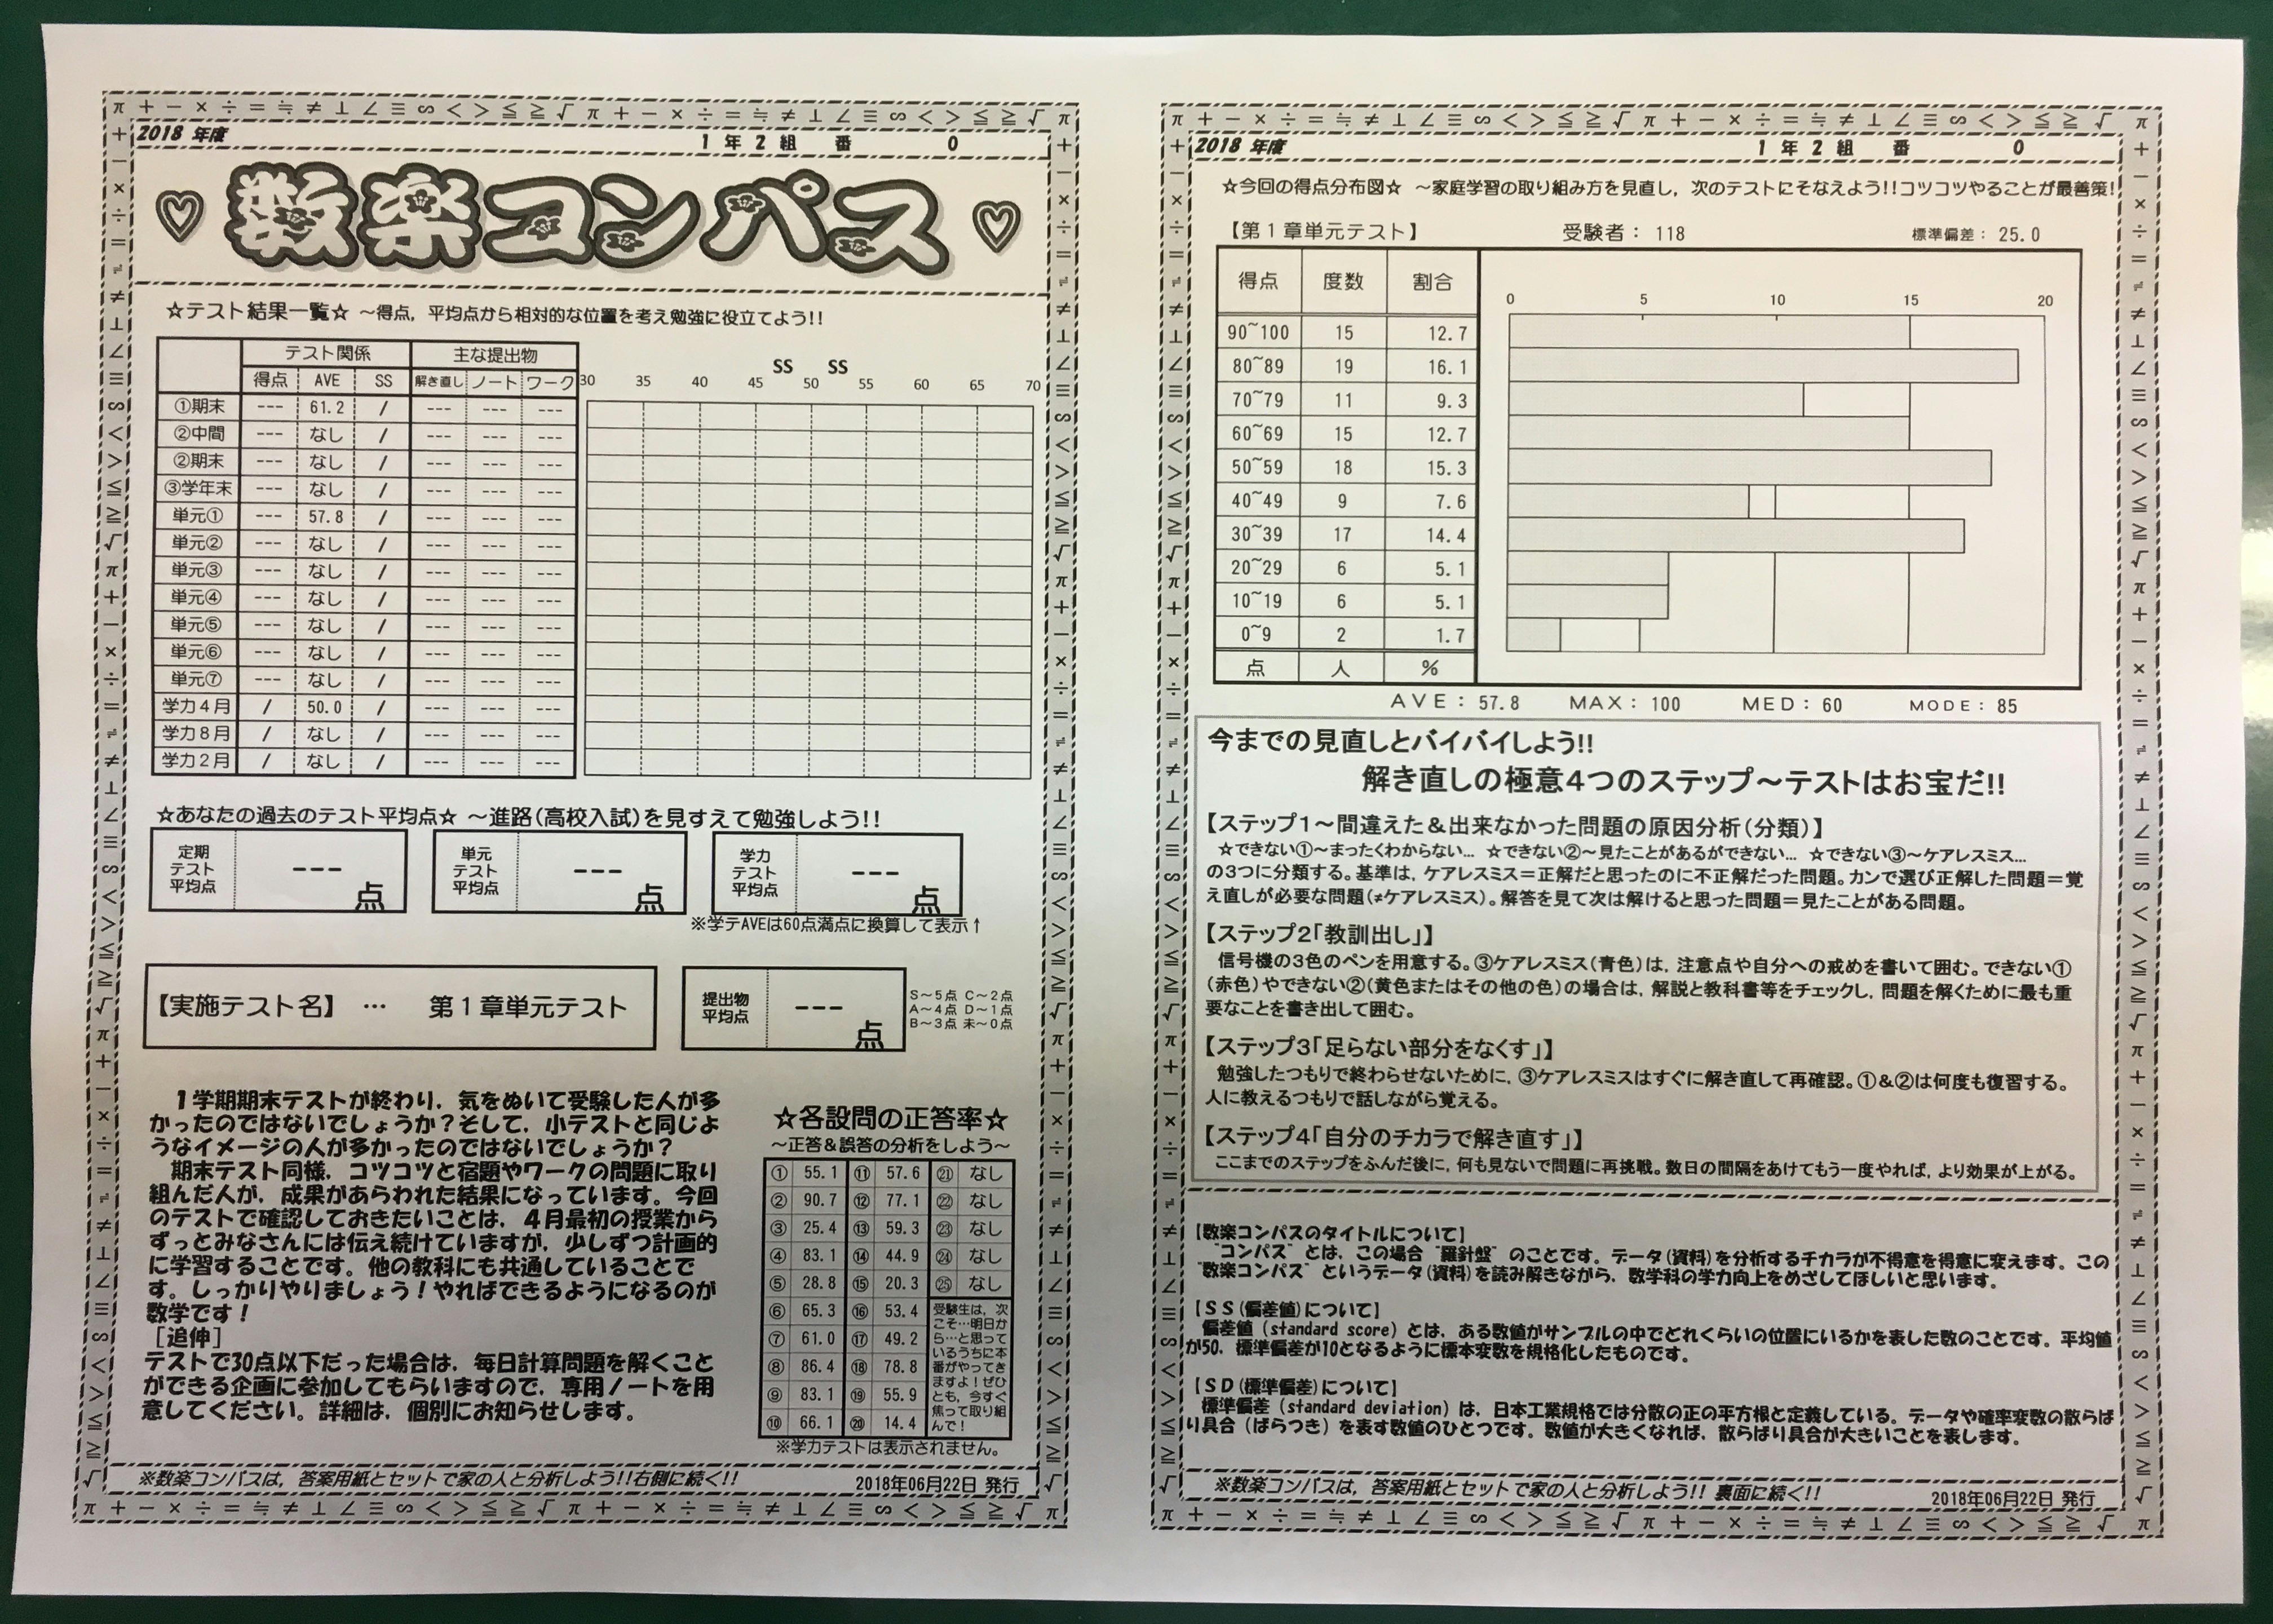 π + − × ÷ = ≒ ≠ ⊥ ∠ ≡ ∽ < > ≦ ≧ √ π + − × ÷ = ≒ ≠ ⊥ ∠ ≡ ∽ < > ≦ ≧ √ π
2018 年度 1 年 2 組 番 0
数楽コンパス
☆テスト結果一覧☆ ～得点，平均点から相対的な位置を考え勉強に役立てよう!!
テスト関係 主な提出物
得点 AVE SS 解き直し ノート ワーク
SS SS
30 35 40 45 50 55 60 65 70
①期末 --- 61.2 / --- --- ---
②中間 --- なし / --- --- ---
②期末 --- なし / --- --- ---
③学年末 --- なし / --- --- ---
単元① --- 57.8 / --- --- ---
単元② --- なし / --- --- ---
単元③ --- なし / --- --- ---
単元④ --- なし / --- --- ---
単元⑤ --- なし / --- --- ---
単元⑥ --- なし / --- --- ---
単元⑦ --- なし / --- --- ---
学力４月 / 50.0 / --- --- ---
学力８月 / なし / --- --- ---
学力２月 / なし / --- --- ---
☆あなたの過去のテスト平均点☆ ～進路(高校入試)を見すえて勉強しよう!!
定期テスト平均点 --- 点
単元テスト平均点 --- 点
学力テスト平均点 --- 点
※学テAVEは60点満点に換算して表示↑
【実施テスト名】 … 第１章単元テスト
提出物平均点 --- 点
S～5点 C～2点
A～4点 D～1点
B～3点 未～0点
１学期期末テストが終わり，気をぬいて受験した人が多
かったのではないでしょうか？そして，小テストと同じよ
うなイメージの人が多かったのではないでしょうか？
期末テスト同様，コツコツと宿題やワークの問題に取り
組んだ人が，成果があらわれた結果になっています。今回
のテストで確認しておきたいことは，４月最初の授業から
ずっとみなさんには伝え続けていますが，少しずつ計画的
に学習することです。他の教科にも共通していることで
す。しっかりやりましょう！やればできるようになるのが
数学です！
［追伸］
テストで30点以下だった場合は，毎日計算問題を解くこと
ができる企画に参加してもらいますので，専用ノートを用
意してください。詳細は，個別にお知らせします。
☆各設問の正答率☆
～正答＆誤答の分析をしよう～
① 55.1 ⑪ 57.6 ㉑ なし
② 90.7 ⑫ 77.1 ㉒ なし
③ 25.4 ⑬ 59.3 ㉓ なし
④ 83.1 ⑭ 44.9 ㉔ なし
⑤ 28.8 ⑮ 20.3 ㉕ なし
⑥ 65.3 ⑯ 53.4
⑦ 61.0 ⑰ 49.2
⑧ 86.4 ⑱ 78.8
⑨ 83.1 ⑲ 55.9
⑩ 66.1 ⑳ 14.4
受験生は，次
こそ…明日か
ら…と思って
いるうちに本
番がやってき
ますよ！ぜひ
とも，今すぐ
焦って取り組
んで！
※学力テストは表示されません。
※数楽コンパスは，答案用紙とセットで家の人と分析しよう!!右側に続く!! 2018年06月22日 発行
π + − × ÷ = ≒ ≠ ⊥ ∠ ≡ ∽ < > ≦ ≧ √ π + − × ÷ = ≒ ≠ ⊥ ∠ ≡ ∽ < > ≦ ≧ √ π
π + − × ÷ = ≒ ≠ ⊥ ∠ ≡ ∽ < > ≦ ≧ √ π + − × ÷ = ≒ ≠ ⊥ ∠ ≡ ∽ < > ≦ ≧ √ π
2018 年度 1 年 2 組 番 0
☆今回の得点分布図☆ ～家庭学習の取り組み方を見直し，次のテストにそなえよう!!コツコツやることが最善策!
【第１章単元テスト】 受験者： 118 標準偏差： 25.0
得点 度数 割合
0 5 10 15 20
90~100 15 12.7
80~89 19 16.1
70~79 11 9.3
60~69 15 12.7
50~59 18 15.3
40~49 9 7.6
30~39 17 14.4
20~29 6 5.1
10~19 6 5.1
0~9 2 1.7
点 人 %
AVE：57.8 MAX：100 MED：60 MODE：85
今までの見直しとバイバイしよう!!
解き直しの極意４つのステップ～テストはお宝だ!!
【ステップ１～間違えた＆出来なかった問題の原因分析(分類)】
☆できない①～まったくわからない… ☆できない②～見たことがあるができない… ☆できない③～ケアレスミス…
の３つに分類する。基準は，ケアレスミス＝正解だと思ったのに不正解だった問題。カンで選び正解した問題＝覚
え直しが必要な問題(≠ケアレスミス)。解答を見て次は解けると思った問題＝見たことがある問題。
【ステップ２「教訓出し」】
信号機の３色のペンを用意する。③ケアレスミス(青色)は，注意点や自分への戒めを書いて囲む。できない①
(赤色)やできない②(黄色またはその他の色)の場合は，解説と教科書等をチェックし，問題を解くために最も重
要なことを書き出して囲む。
【ステップ３「足らない部分をなくす」】
勉強したつもりで終わらせないために，③ケアレスミスはすぐに解き直して再確認。①＆②は何度も復習する。
人に教えるつもりで話しながら覚える。
【ステップ４「自分のチカラで解き直す」】
ここまでのステップをふんだ後に，何も見ないで問題に再挑戦。数日の間隔をあけてもう一度やれば，より効果が上がる。
【数楽コンパスのタイトルについて】
“コンパス”とは，この場合“羅針盤”のことです。データ(資料)を分析するチカラが不得意を得意に変えます。この
“数楽コンパス”というデータ(資料)を読み解きながら，数学科の学力向上をめざしてほしいと思います。
【ＳＳ(偏差値)について】
偏差値（standard score）とは，ある数値がサンプルの中でどれくらいの位置にいるかを表した数のことです。平均値
が50，標準偏差が10となるように標本変数を規格化したものです。
【ＳＤ(標準偏差)について】
標準偏差（standard deviation）は，日本工業規格では分散の正の平方根と定義している。データや確率変数の散らば
り具合（ばらつき）を表す数値のひとつです。数値が大きくなれば，散らばり具合が大きいことを表します。
※数楽コンパスは，答案用紙とセットで家の人と分析しよう!! 裏面に続く!! 2018年06月22日 発行
π + − × ÷ = ≒ ≠ ⊥ ∠ ≡ ∽ < > ≦ ≧ √ π + − × ÷ = ≒ ≠ ⊥ ∠ ≡ ∽ < > ≦ ≧ √ π